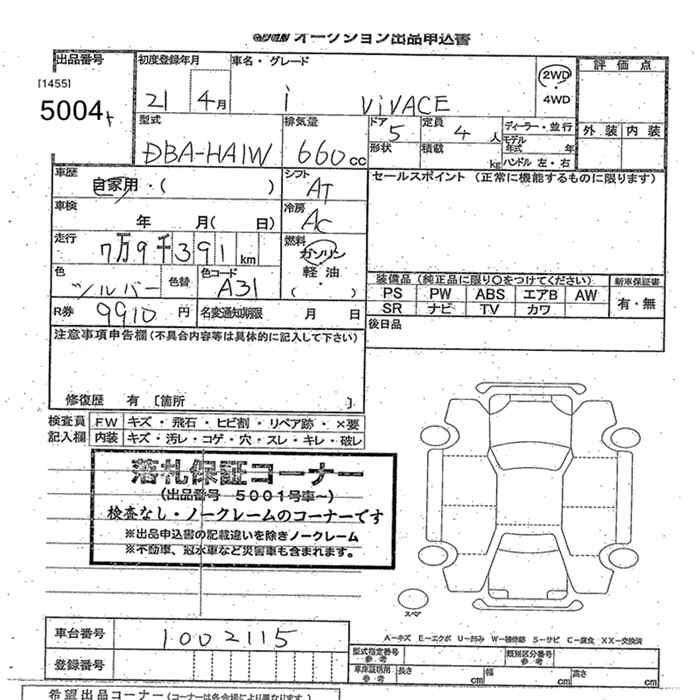 オークション出品申込書
出品番号 初度登録年月 車名・グレード 評価点
[1455]
5004 21 4月 i ViVACE 2WD・4WD
外装 内装
型式 排気量 ドア 5 定員 4人 ディーラー・並行
DBA-HA1W 660cc 形状 積載 kg モデル年式 年
ハンドル 左・右
車歴 自家用・( ) シフト AT セールスポイント (正常に機能するものに限ります)
車検 年 月( 日) 冷房 AC
走行 7万9千391km 燃料 ガソリン・軽油・( )
色 シルバー 色替 色コード A31
装備品 (純正品に限り○をつけてください) 新車保証書
PS PW ABS エアB AW 有・無
SR ナビ TV カワ
R券 9910円 名変通知期限 月 日
後日品
注意事項申告欄 (不具合内容等は具体的に記入して下さい)
修復歴 有 [箇所 ]
検査員 FW キズ・飛石・ヒビ割・リペア跡・×要
記入欄 内装 キズ・汚レ・コゲ・穴・スレ・キレ・破レ
落札保証コーナー
(出品番号 5001号車~)
検査なし・ノークレームのコーナーです
※出品申込書の記載違いを除きノークレーム
※不動車、冠水車など災害車も含まれます。
スペア
A-キズ E-エクボ U-凹み W-補修跡 S-サビ C-腐食 XX-交換済
車台番号 1002115
型式指定番号 参考 類別区分番号 参考
登録番号
車庫証明用 参考 長さ cm 幅 cm 高さ cm
希望出品コーナー (コーナーは各会場により異なります)